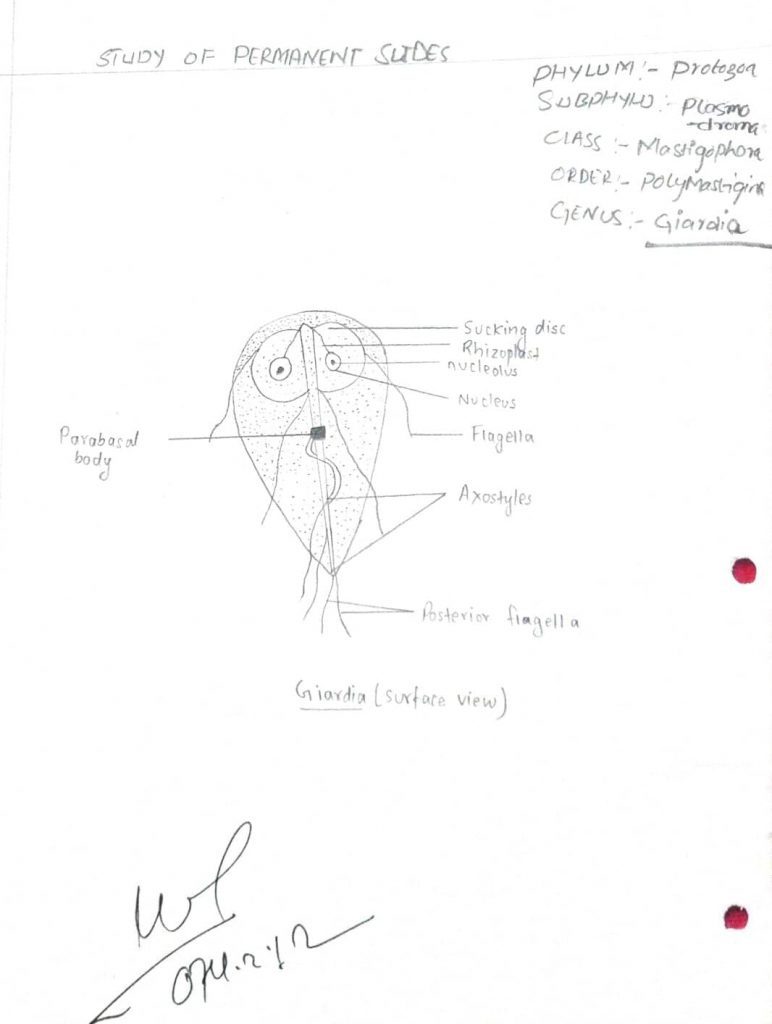 STUDY OF PERMANENT SLIDES
PHYLUM:- Protozoa
SUBPHYLU:- Plasmo
-droma
CLASS:- Mastigophora
ORDER:- Polymastigina
GENUS:- Giardia
Sucking disc
Rhizoplast
nucleolus
Nucleus
Flagella
Parabasal
body
Axostyles
Posterior flagella
Giardia (surface view)